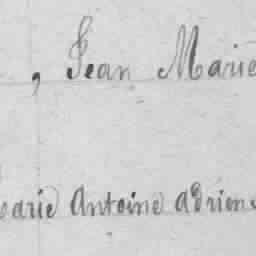 , Jean Marie
Marie Antoine adrien